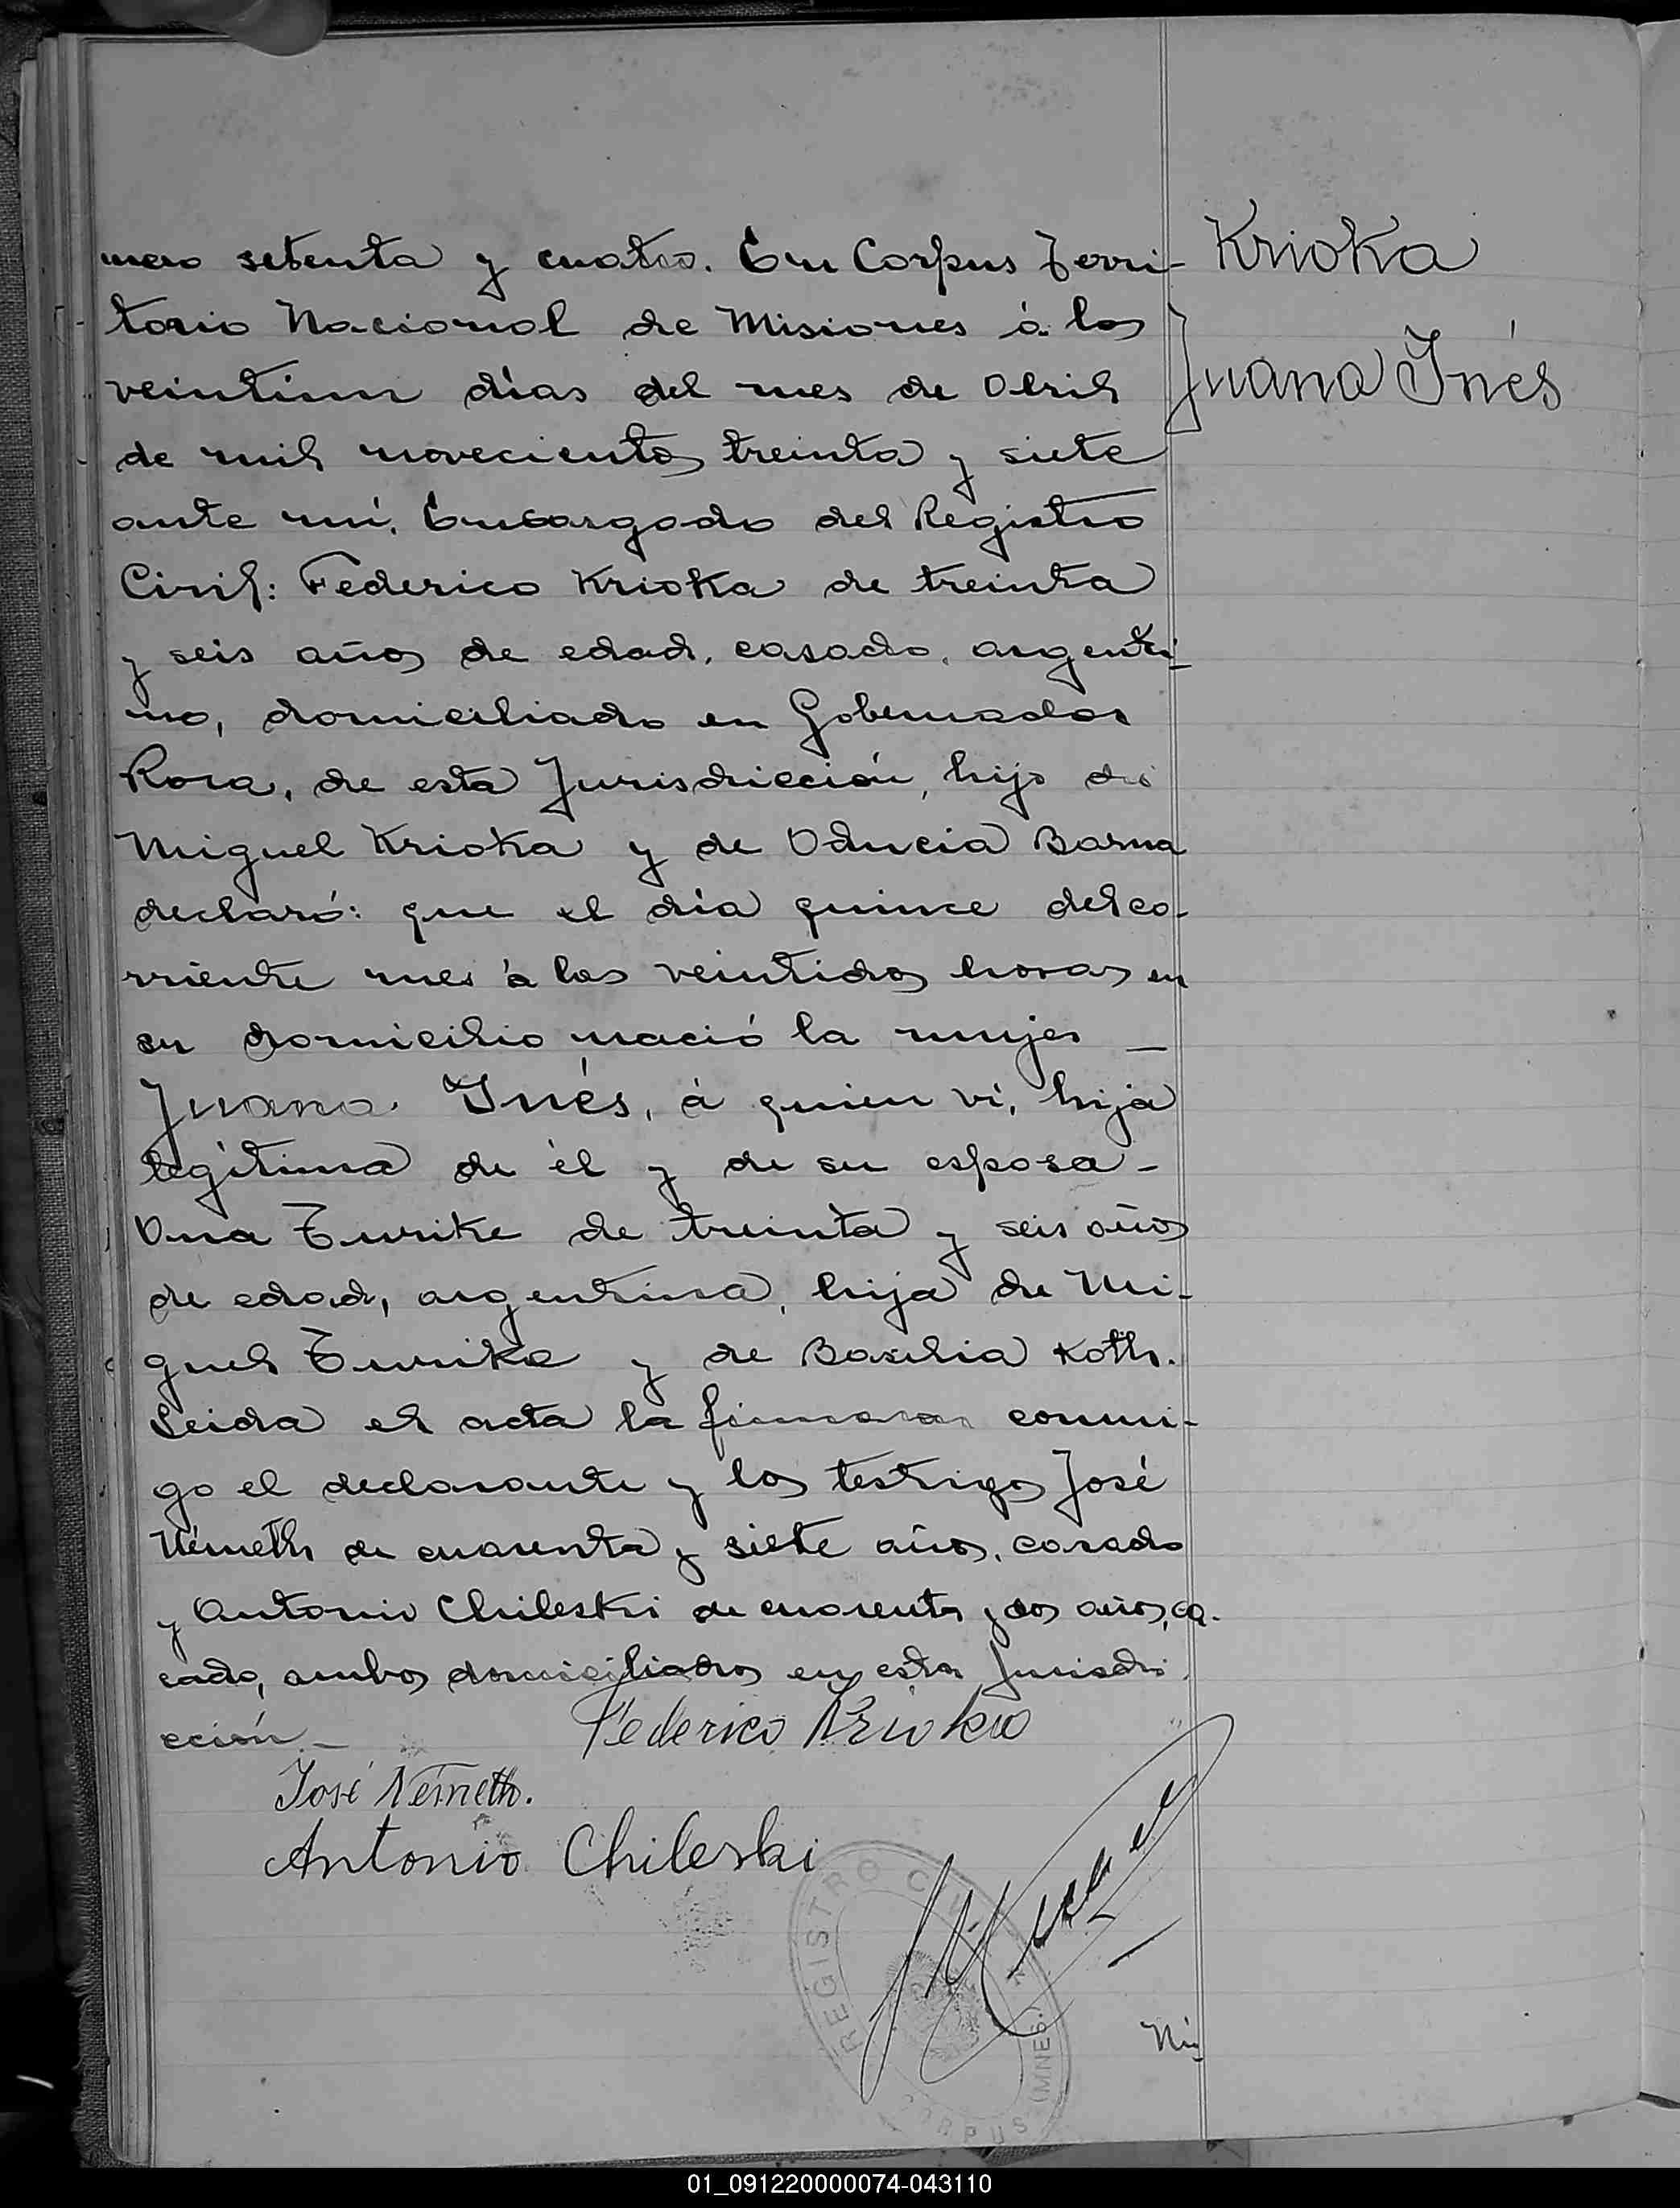 mero setenta y cuatro. En Corpus Terri-
torio Nacional de Misiones á los
veintiun días del mes de Abril
de mil novecientos treinta y siete
ante mí, Encargado del Registro
Civil: Federico Krioka de treinta
y seis años de edad, casado, argenti-
no, domiciliado en Gobernador
Roca, de esta Jurisdicción, hijo de
Miguel Krioka y de Barna
declaró: que el día quince del co-
rriente mes á las veintidos horas en
su domicilio nació la mujer —
Juana Inés, á quien ví, hija
legítima de él y de su esposa -
Ana Turike de treinta y seis años
de edad, argentina, hija de Mi-
guel Turike y de Basilia Koth.
Leida el acta la firmaron conmi-
go el declarante y los testigos José
Németh de cuarenta y siete años, casado
y Antonio Chileski de cuarenta y dos años, ca-
sado, ambos domiciliados en esta Jurisdi
cción. —
Krioka
Juana Inés
Federico Krioka
José Németh.
Antonio Chileski
REGISTRO CIVIL
CORPUS (MNES.)
Nú
01_091220000074-043110